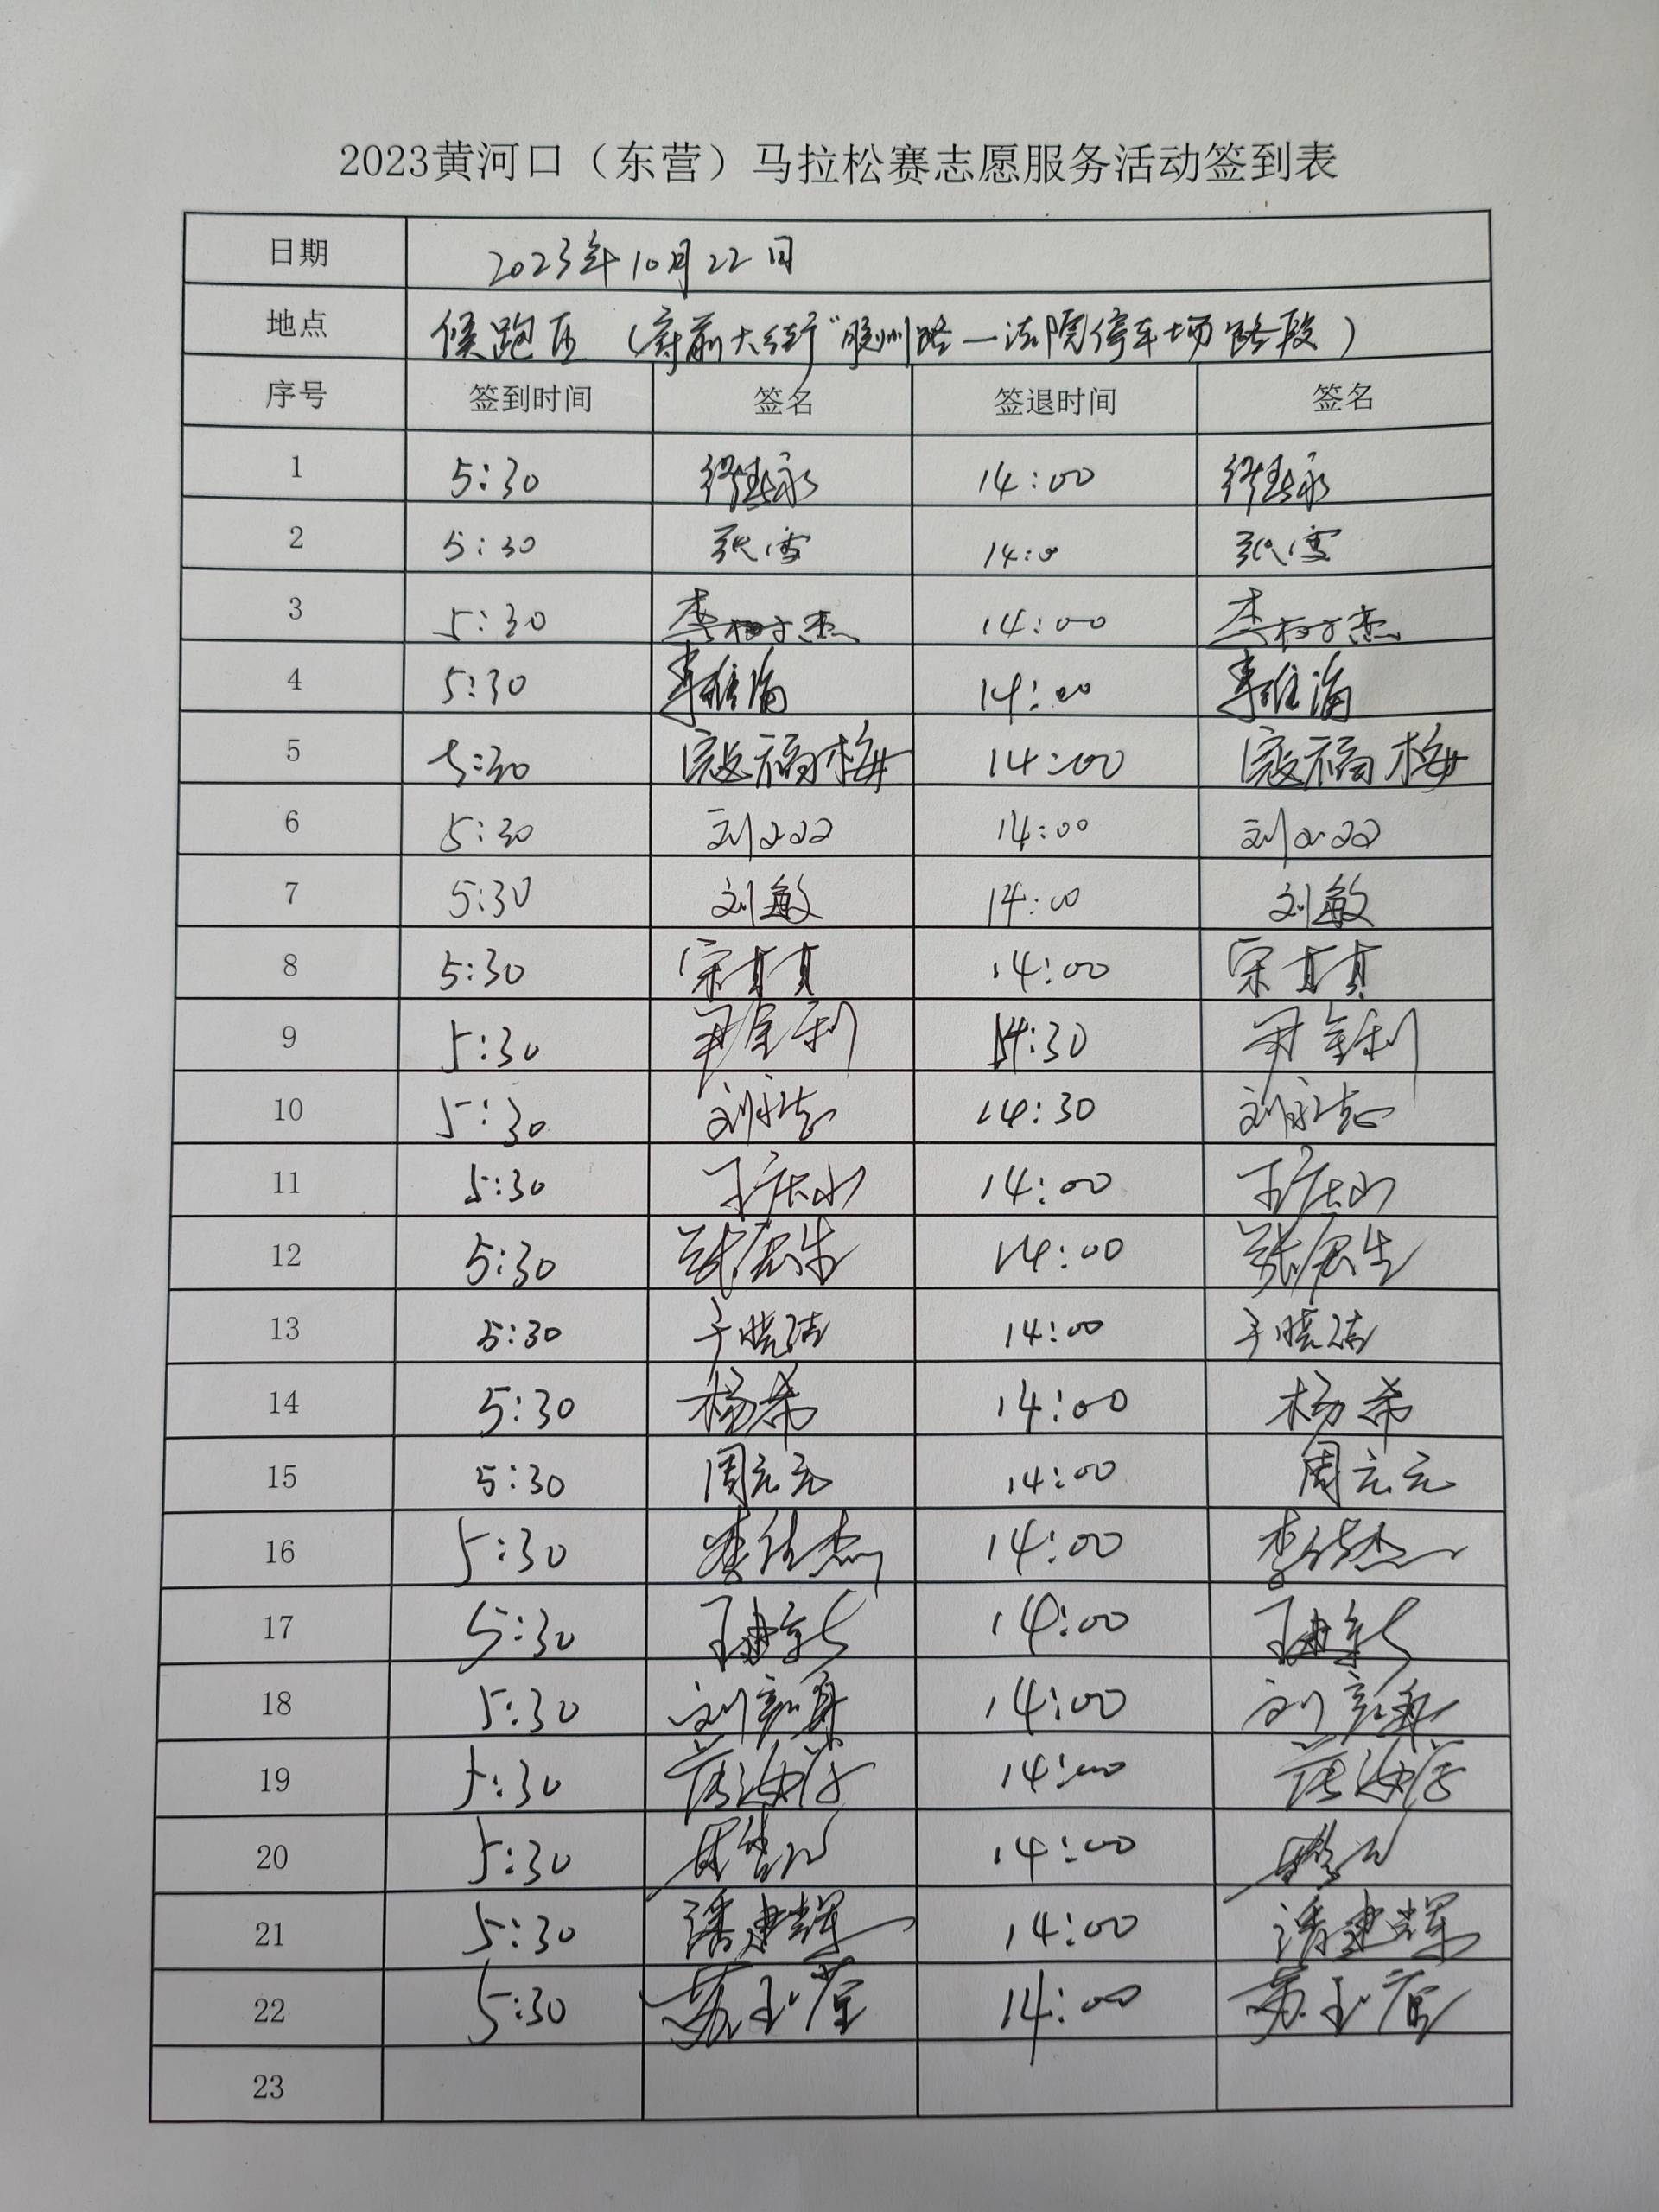 2023黄河口（东营）马拉松赛志愿服务活动签到表
日期 2023年10月22日
地点 候跑区（府前大街"胶州路—法院停车场路段）
序号 签到时间 签名 签退时间 签名
1 5:30 14:00
2 5:30 张雪 14:0 张雪
3 5:30 李树杰 14:00 李树杰
4 5:30 李维海 14:00 李维海
5 5:30 寇福梅 14:00 寇福梅
6 5:30 刘 14:00 刘
7 5:30 刘敏 14:00 刘敏
8 5:30 宋真真 14:00 宋真真
9 5:30 尹金利 14:30 尹金利
10 5:30 刘永志 14:30 刘永志
11 5:30 王庆水 14:00 王庆水
12 5:30 14:00
13 5:30 于晓洁 14:00 于晓洁
14 5:30 杨希 14:00 杨希
15 5:30 周元元 14:00 周元元
16 5:30 14:00
17 5:30 王建新 14:00 王建新
18 5:30 刘 14:00 刘
19 5:30 14:00
20 5:30 14:00
21 5:30 潘建辉 14:00 潘建辉
22 5:30 苏玉萱 14:00 苏玉萱
23